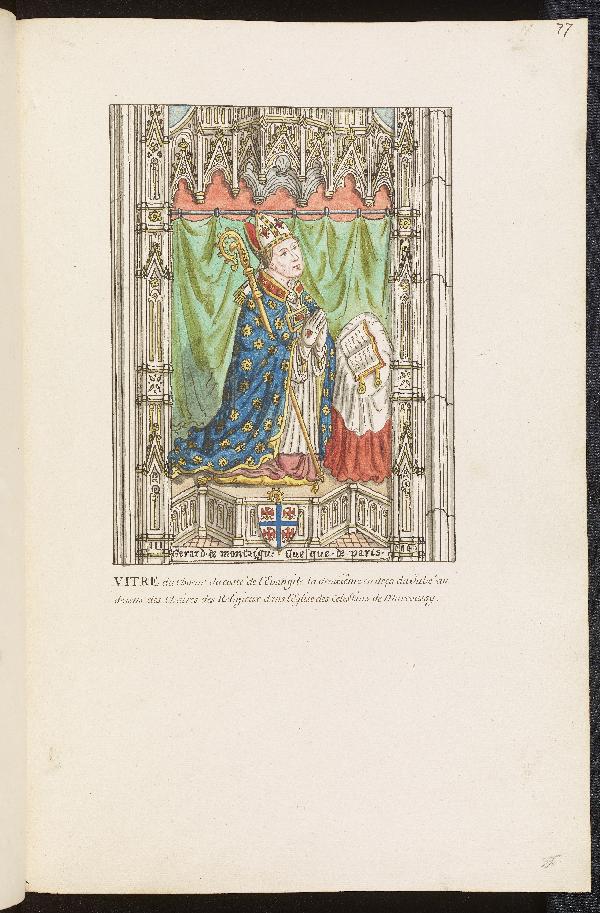 77
Gerard de montaigu. Euesque de paris.
VITRE du Choeur du costé de l'Evangile la deuxiême en deça du Jubé au
dessus des Chaires des Religieux dans l'Eglise des Celestins de Marcoussy.